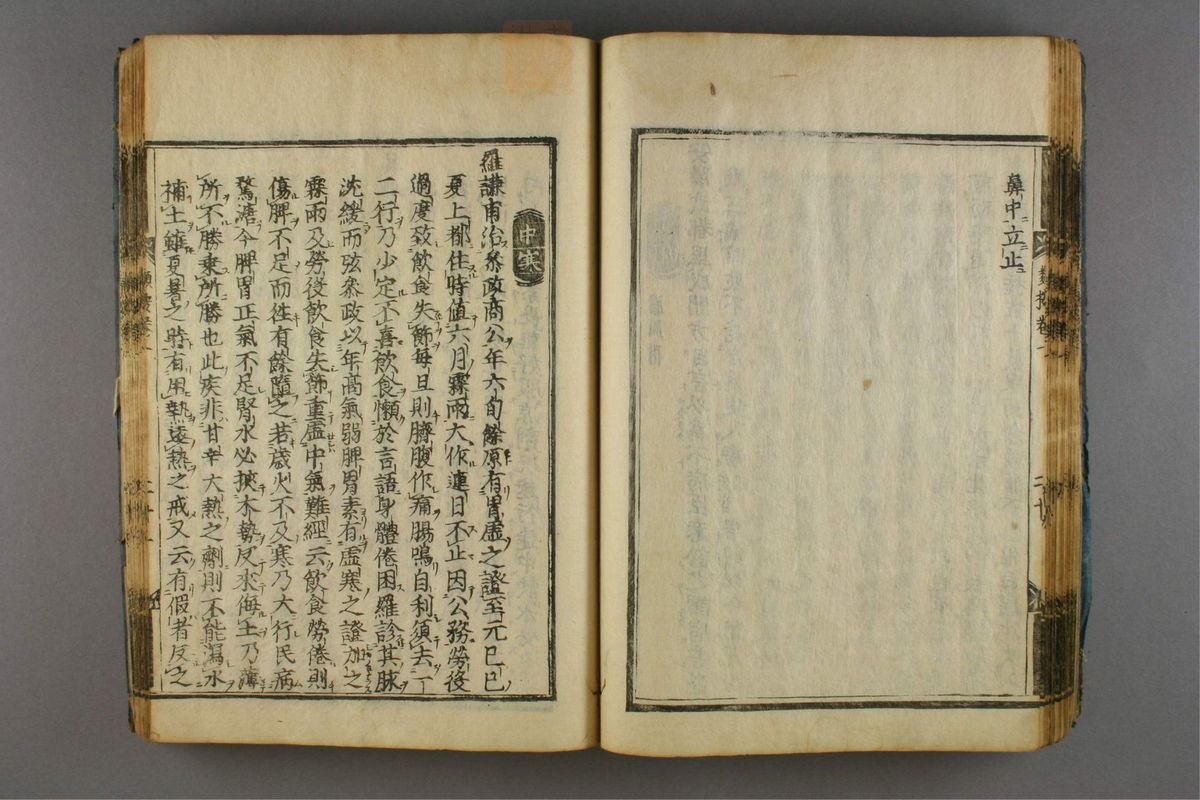 鼻中立止
中寒
羅謙甫治參政商公年六旬餘原有胃虛之證至元己巳
夏上都住時值六月霖雨大作連日不止因公務勞役
過度致飲食失節每旦則臍腹作痛腸鳴自利須去一
二行乃少定不喜飲食懶於言語身體倦困羅診其脉
沈緩而弦參政以年高氣弱脾胃素有虛寒之證加之
霖雨及勞役飲食失節重虛中氣難經云飲食勞倦則
傷脾不足而往有餘隨之若歲火不及寒乃大行民病
鶩溏今脾胃正氣不足腎水必挾木勢反來侮土乃薄
所不勝乘所勝也此疾非甘辛大熱之劑則不能瀉水
補土雖夏暑之時有用熱遠熱之戒又云有假者反之